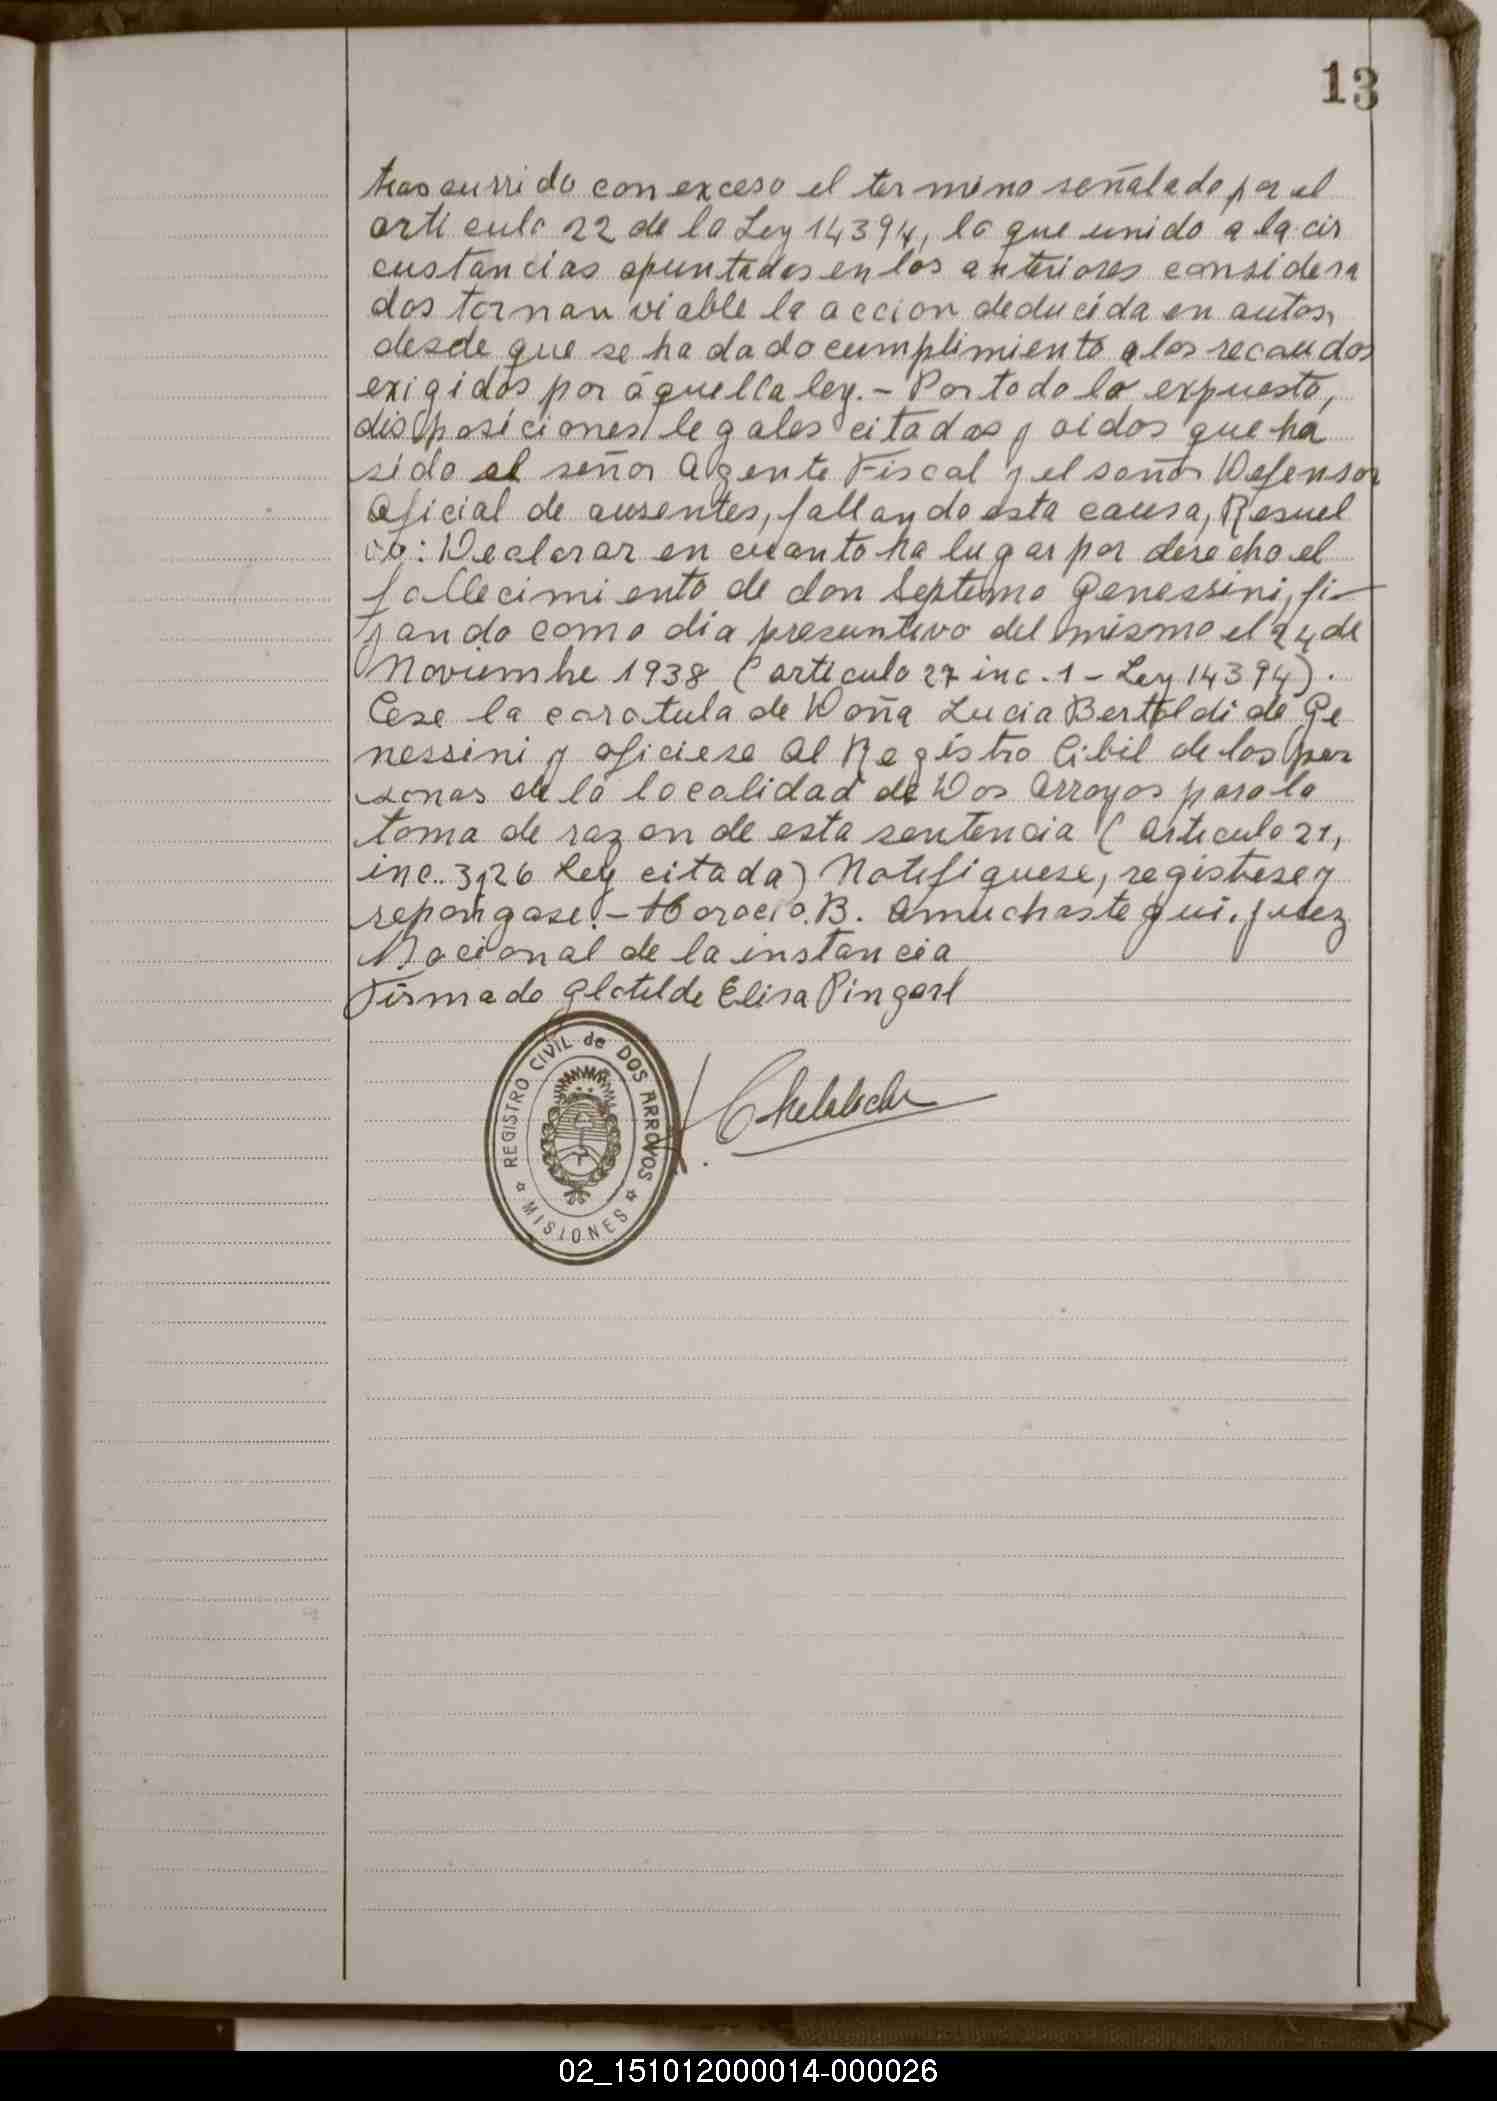 13
trascurrido con exceso el termino señalado por el
articulo 22 de la Ley 14394, lo que unido a la cir
custancias apuntadas en los anteriores considera
dos tornan viable la accion deducida en autos,
desde que se ha dado cumplimiento a los recaudos
exigidos por aquella ley.- Por todo lo expuesto,
disposiciones legales citadas y oidos que ha
sido el señor Agente Fiscal y el señor Defensor
Oficial de ausentes, fallando esta causa, Resuel
vo: Declarar en cuanto ha lugar por derecho el
fallecimiento de don Septimo Genessini, fi-
jando como dia presuntivo del mismo el 24 de
Noviembre 1938 (articulo 27 inc. 1 - Ley 14394).
Cese la caratula de Doña Lucia Bertoldi de Ge
nessini y oficiese al Registro Cibil de las per
sonas de la localidad de Dos Arroyos para la
toma de razon de esta sentencia (articulo 21,
inc. 3 y 26 Ley citada) Notifiquese, registrese y
repongase.- Horacio. B. Amuchastegui. juez
Nacional de la instancia
Firmado Glotilde Elisa Pingarl
REGISTRO CIVIL de DOS ARROYOS
MISIONES
02_151012000014-000026